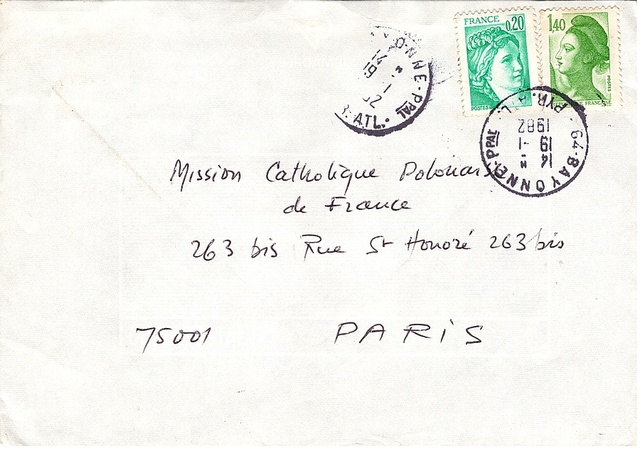 FRANCE 0,20
1,40
POSTES
FRANCE
ONNE-PPAL
14 H
19 -1-
ATL.
64-BAYONNE-PPAL
14 H
19 -1-
1982
PYR. ATL.
Mission Catholique Polonais
de France
263 bis Rue St Honoré 263 bis
75001 PARIS